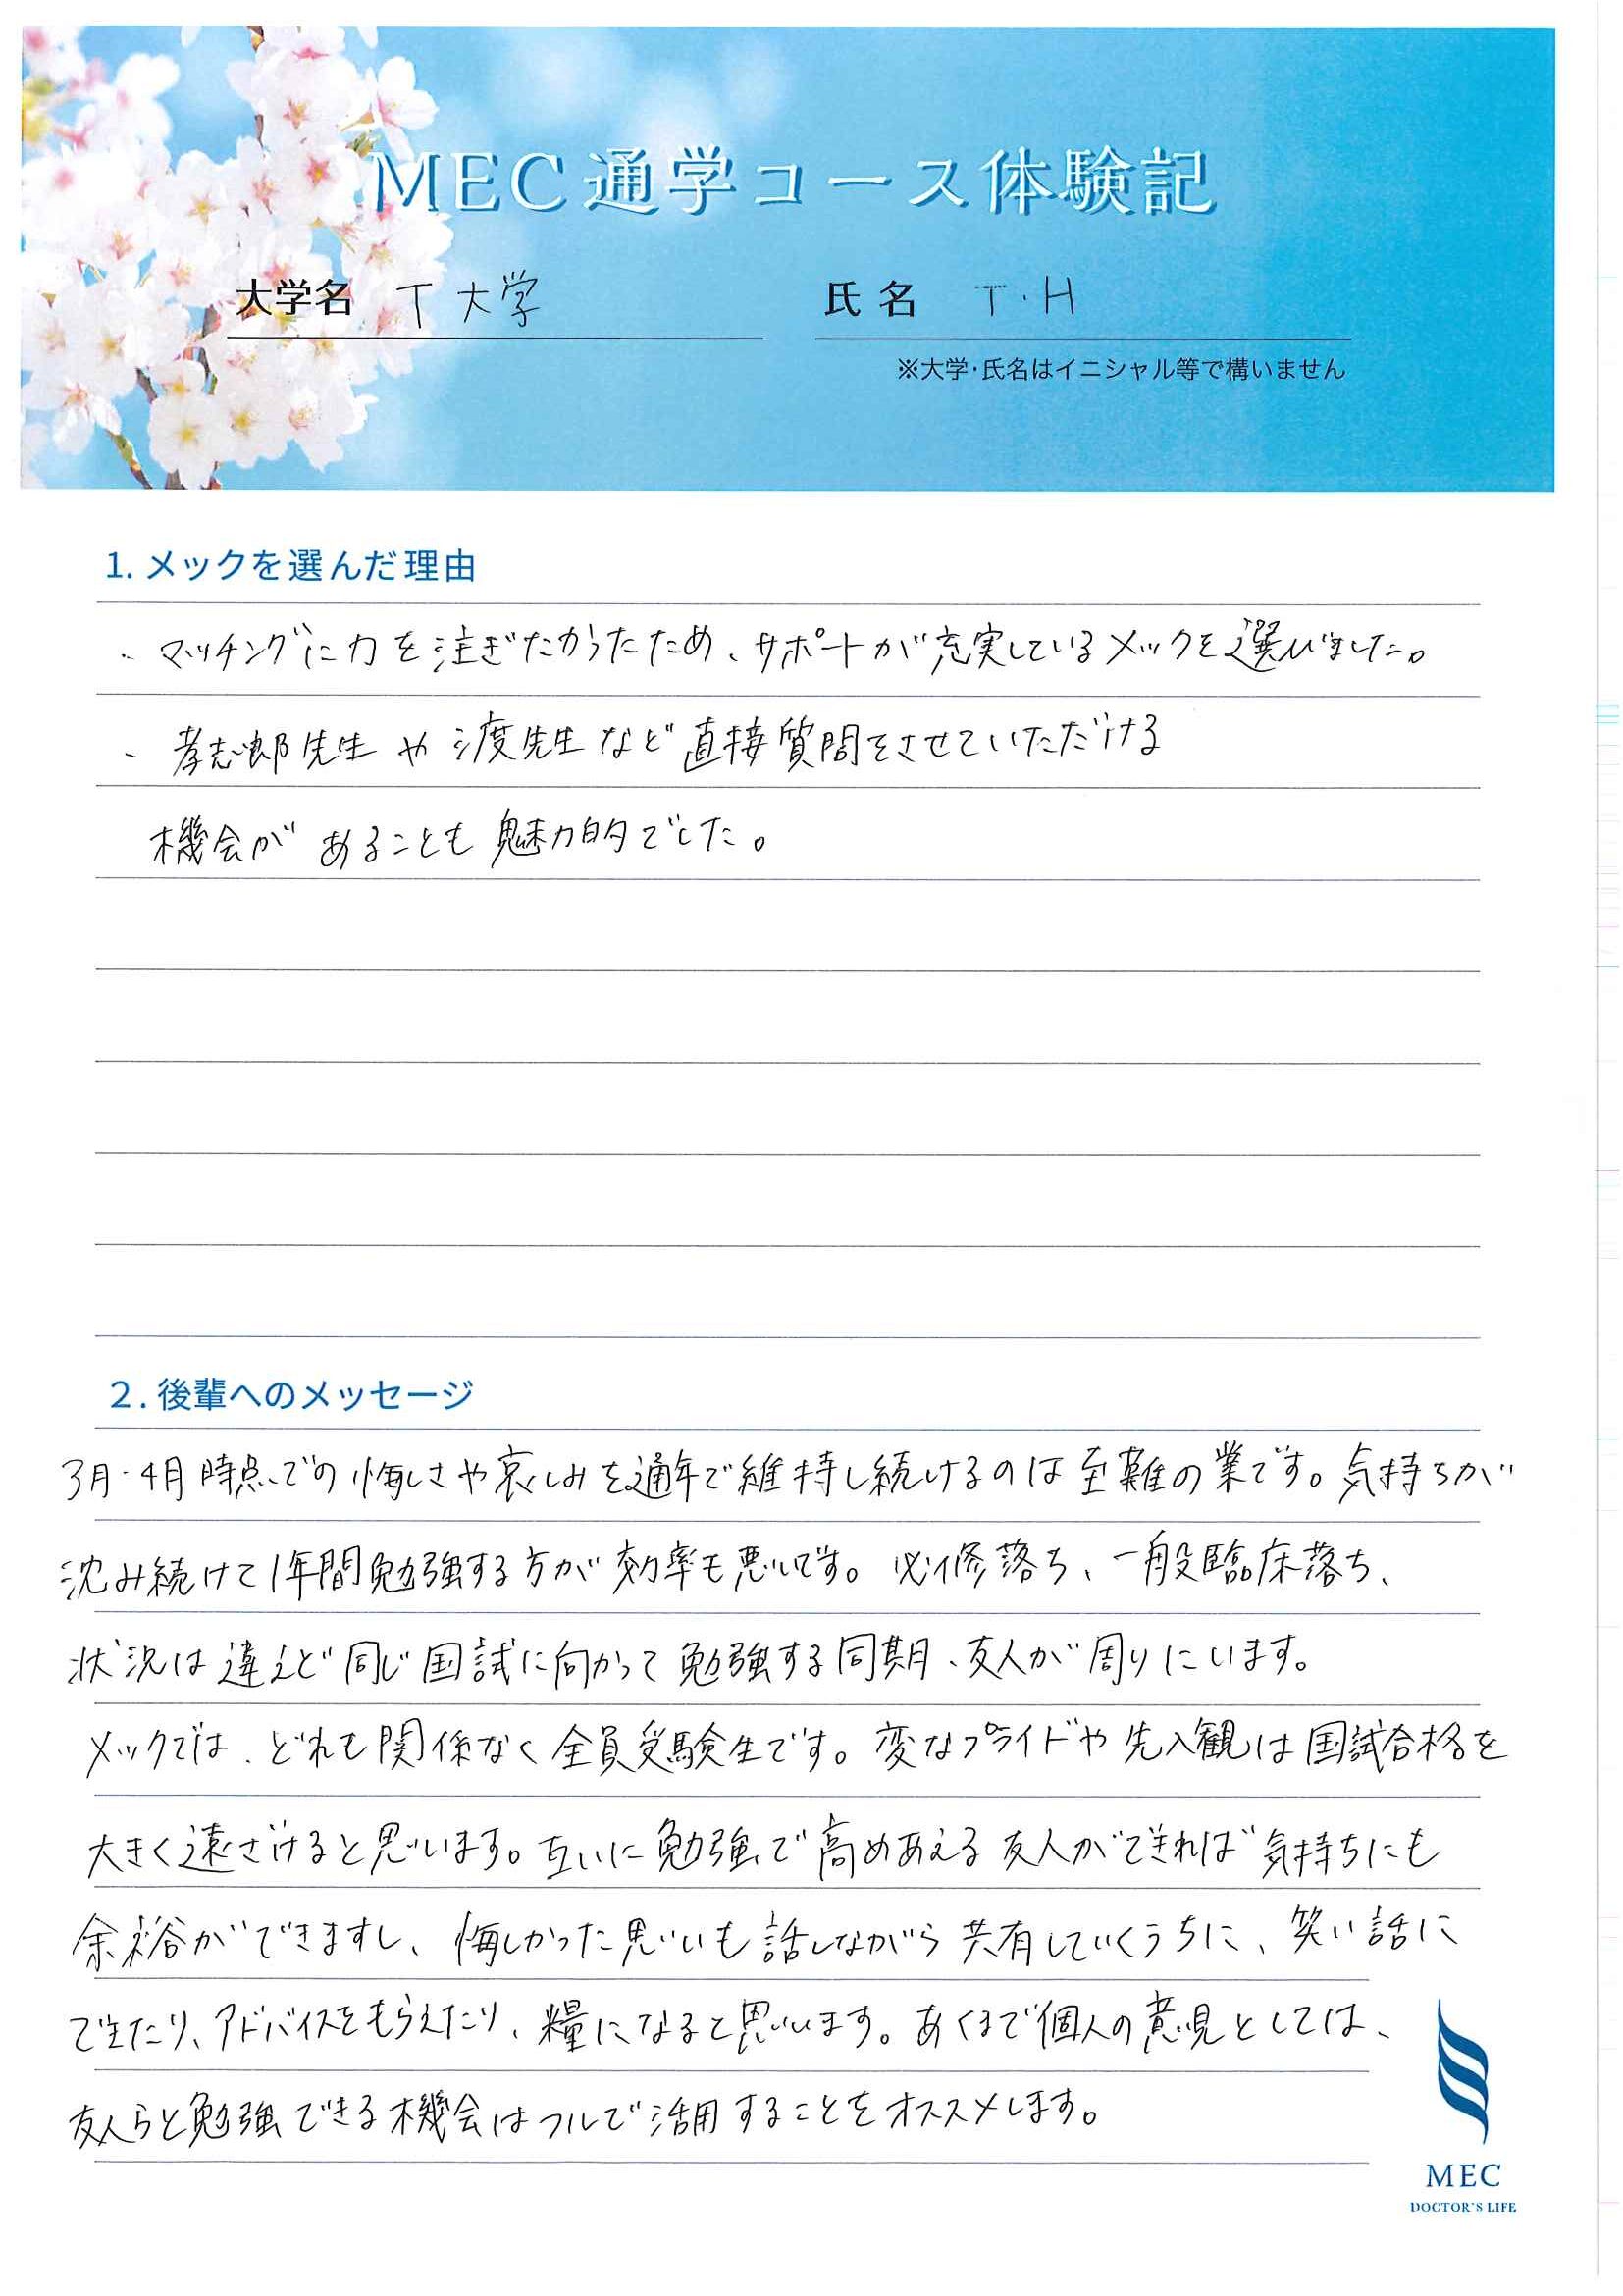 MEC通学コース体験記
大学名 T大学 氏名 T・H
※大学・氏名はイニシャル等で構いません
1. メックを選んだ理由
・マッチングに力を注ぎたかったため、サポートが充実しているメックを選びました。
・孝志郎先生や渡先生など直接質問をさせていただける
機会があることも魅力的でした。
2. 後輩へのメッセージ
3月・4月時点での悔しさや哀しみを通年で維持し続けるのは至難の業です。気持ちが
沈み続けて1年間勉強する方が効率も悪いです。必修落ち、一般臨床落ち、
状況は違えど同じ国試に向かって勉強する同期、友人が周りにいます。
メックでは、どれも関係なく全員受験生です。変なプライドや先入観は国試合格を
大きく遠ざけると思います。互いに勉強で高めあえる友人ができれば気持ちにも
余裕ができますし、悔しかった思いも話しながら共有していくうちに、笑い話に
できたり、アドバイスをもらえたり、糧になると思います。あくまで個人の意見としては、
友人らと勉強できる機会はフルで活用することをオススメします。
MEC
DOCTOR'S LIFE